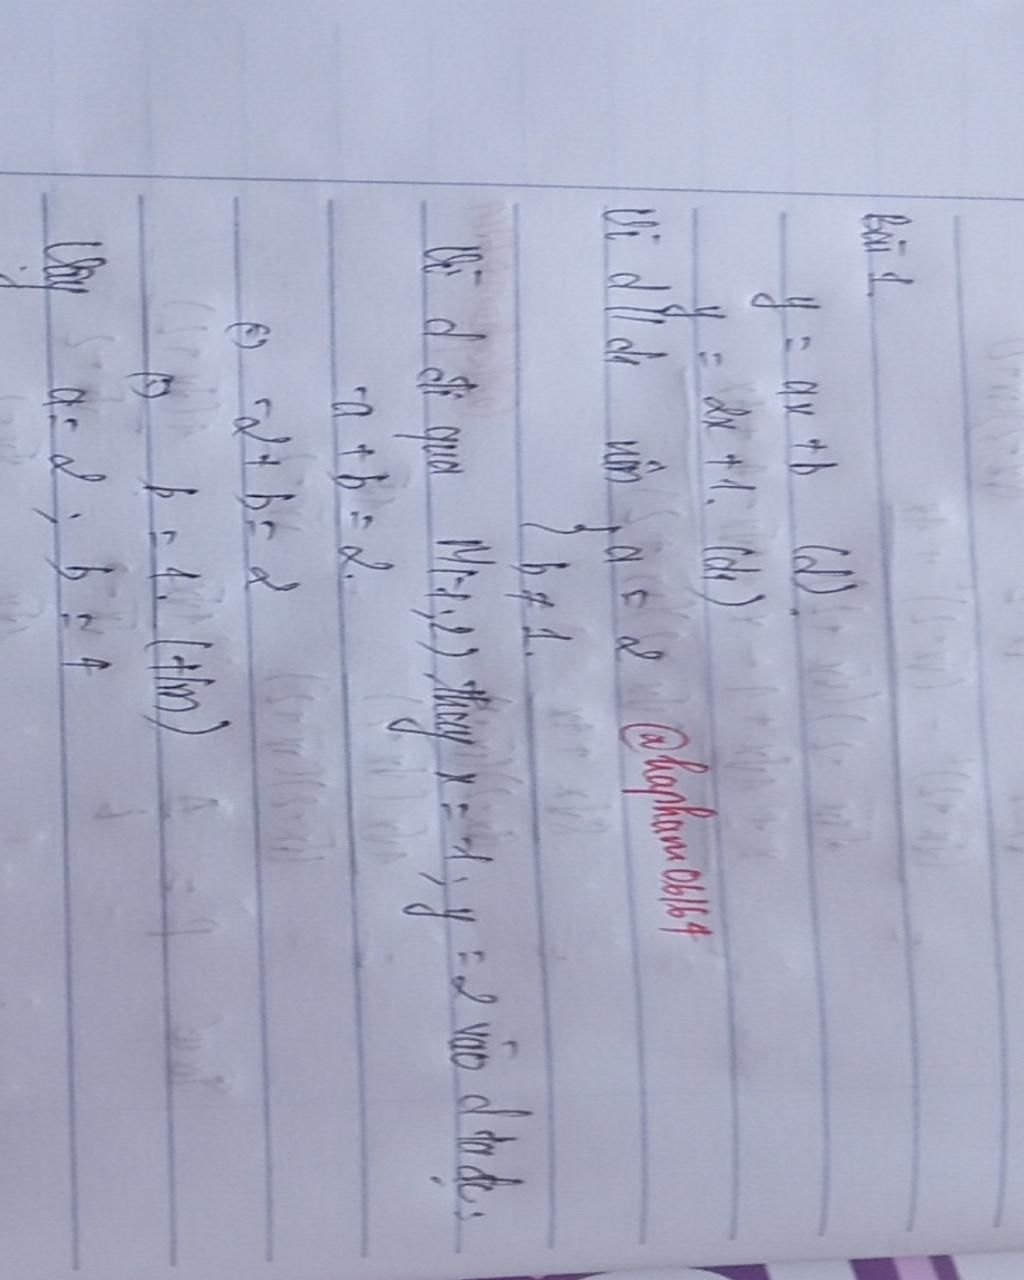 Bài 1.
y = ax + b (d).
y = 2x + 1. (d1)
Vì d // d1 nên { a = 2 @hapham06164
{ b ≠ 1.
Vì d đi qua M(-1,2), thay x = -1, y = 2 vào d ta đc:
-a + b = 2.
(=) -2 + b = 2
(=) b = 4. (t/m)
Vậy a = 2 ; b = 4